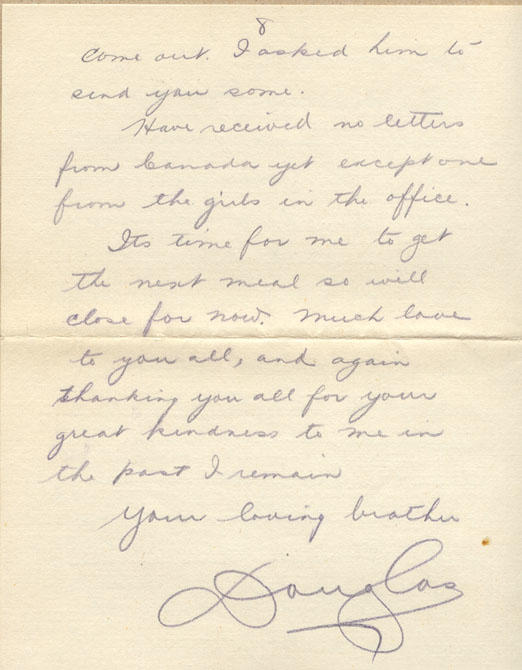 8
come out. I asked him to
send you some.
Have received no letters
from Canada yet except one
from the girls in the office.
Its time for me to get
the next meal so will
close for now. Much love
to you all, and again
thanking you all for your
great kindness to me in
the past I remain
Your loving brother
Douglas